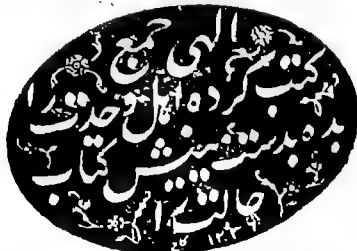 الهی جمع
کتب کرده اهل وحدت را
بده بدست پیش کتاب
حالت